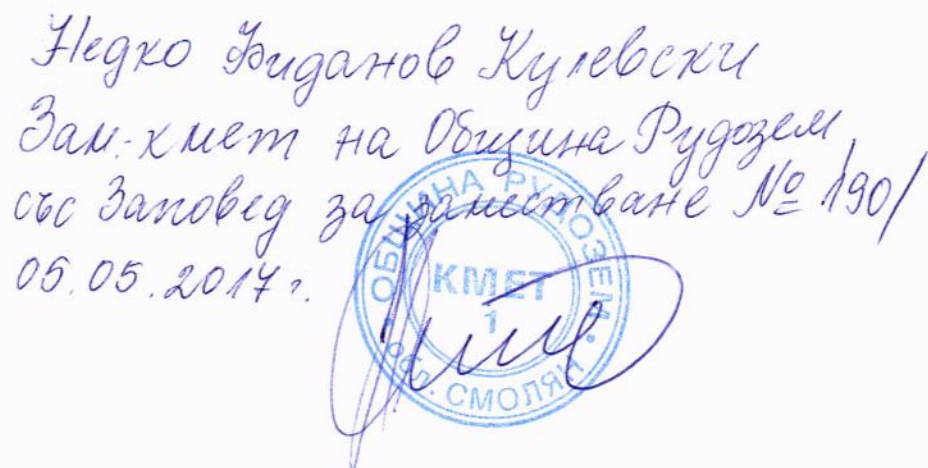 Недко Фиданов Кулевски
Зам.-кмет на Община Рудозем,
със Заповед за заместване № 190/
05.05.2017г.
ОБЩИНА РУДОЗЕМ • ОБЛ. СМОЛЯН •
КМЕТ
1